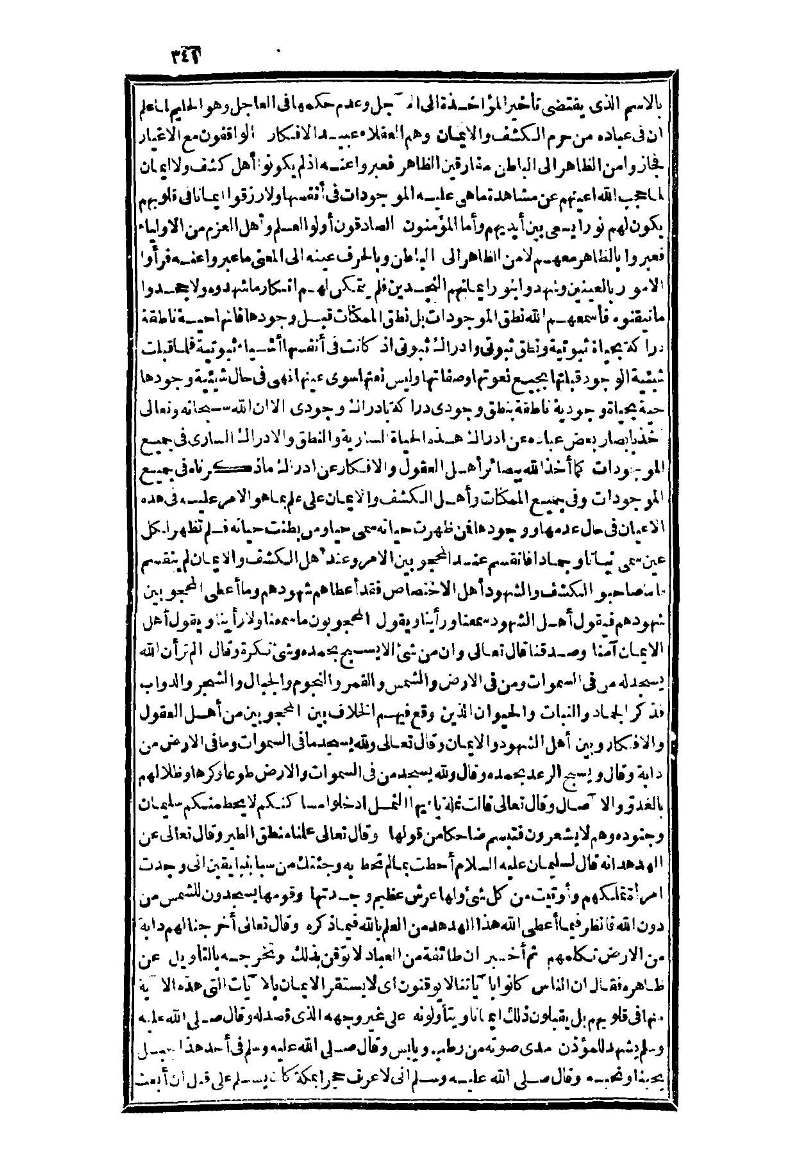 ٣٤٦
بالاسم الذى يقتضى تأخير المؤاخذة الى الآجل وعدم حكمها فى العاجل وهو الحليم لما علم
ان فى عباده من حرم الكشف والايمان وهم العقلاء عبيد الافكار الواقفون مع الاعتبار
فجازوا من الظاهر الى الباطن مفارقين الظاهر فعبروا عنه اذ لم يكونوا أهل كشف ولا ايمان
لما حجب الله أعينهم عن مشاهدة ما هى عليه الموجودات فى أنفسها ولا رزقوا ايمانا فى قلوبهم
يكون لهم نورا يسعى بين أيديهم وأما المؤمنون الصادقون أولوا العلم وأهل العزم من الاولياء
فعبروا بالظاهر معهم لا من الظاهر الى الباطن وبالحرف عينه الى المعنى ما عبروا عنه فرأوا
الامور بالعينين وشهدوا بنور ايمانهم النجدين فلم يتمكن لهم انكار ما شهدوه ولا جحدوا
ما تيقنوه فأسمعهم الله نطق الموجودات بل نطق الممكنات قبل وجودها فانها حية ناطقة
دراكة بحياة ثبوتية ونطق ثبوتى وادراك ثبوتى اذ كانت فى أنفسها أشياء ثبوتية فلما قبلت
شيئية الوجود قبلتها بجميع نعوتها وصفاتها وليس نعتها سوى عينها فهى فى حال شيئية وجودها
حية بحياة وجودية ناطقة بنطق وجودى دراكة بادراك وجودى الا ان الله سبحانه وتعالى
أخذ بأبصار بعض عباده عن ادراك هذه الحياة السارية والنطق والادراك السارى فى جميع
الموجودات كما أخذ الله ببصائر أهل العقول والافكار عن ادراك ما ذكرناه فى جميع
الموجودات وفى جميع الممكنات وأهل الكشف والايمان على علم بما هو الامر عليه فى هذه
الاعيان فى حال عدمها ووجودها فمن ظهرت حياته سمى حيا ومن بطنت حياته فلم تظهر لكل
عين سمى نباتا وجمادا فانقسم عند المحجوبين الامر وعند أهل الكشف والايمان لم ينقسم
فأما صاحبو الكشف والشهود أهل الاختصاص فقد أعطاهم شهودهم وما أعطى المحجوبين
شهودهم فيقول أهل الشهود سمعنا ورأينا ويقول المحجوبون ما سمعنا ولا رأينا ويقول أهل
الايمان آمنا وصدقنا قال تعالى وان من شئ الا يسبح بحمده وشئ نكرة وقال ألم تر أن الله
يسجد له من فى السموات ومن فى الارض والشمس والقمر والنجوم والجبال والشجر والدواب
فذكر الجماد والنبات والحيوان الذين وقع فيهم الخلاف بين المحجوبين من أهل العقول
والافكار وبين أهل الشهود والايمان وقال تعالى ولله يسجد ما فى السموات وما فى الارض من
دابة وقال ويسبح الرعد بحمده وقال ولله يسجد من فى السموات والارض طوعا وكرها وظلالهم
بالغدو والآصال وقال تعالى قالت نملة يا أيها النمل ادخلوا مساكنكم لا يحطمنكم سليمان
وجنوده وهم لا يشعرون فتبسم ضاحكا من قولها وقال تعالى علمنا منطق الطير وقال تعالى عن
الهدهد انه قال لسليمان عليه السلام أحطت بما لم تحط به وجئتك من سبا بنبا يقين انى وجدت
امرأة تملكهم وأوتيت من كل شئ ولها عرش عظيم وجدتها وقومها يسجدون للشمس من
دون الله فانظر فيما أعطى الله هذا الهدهد من العلم بالله فيما ذكره وقال تعالى أخرجنا لهم دابة
من الارض تكلمهم ثم أخبر ان طائفة من العباد لا توقن بذلك وتخرجه بالتأويل عن
ظاهره فقال ان الناس كانوا بآياتنا لا يوقنون اى لا يستقر الايمان بالآيات التى هذه الآية
منها فى قلوبهم بل يقبلون ذلك ايمانا ويتأولونه على غير وجهه الذى قصد له وقال صلى الله عليه
وسلم يشهد للمؤذن مدى صوته من رطب ويابس وقال صلى الله عليه وسلم فى أحد هذا جبل
يحبنا ونحبه وقال صلى الله عليه وسلم انى لاعرف حجرا بمكة كان يسلم على قبل أن أبعث